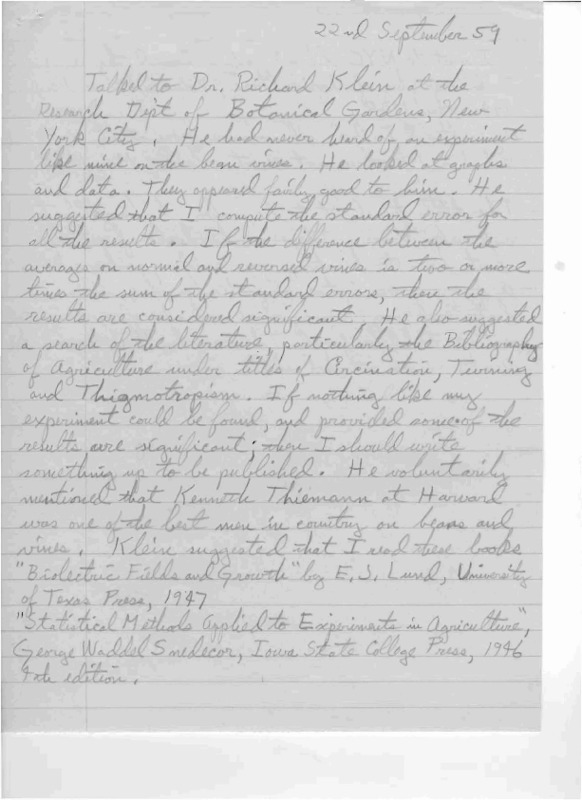 22nd September 59
Talked to Dr. Richard Klein at the
Research Dept of Botanical Gardens, New
York City. He had never heard of an experiment
like mine on the bean vines. He looked at graphs
and data. They appeared fairly good to him. He
suggested that I compute the standard error for
all the results. If the difference between the
averages on normal and reversed vines is two or more
times the sum of the standard errors, then the
results are considered significant. He also suggested
a search of the literature, particularly the Bibliography
of Agriculture under titles of Circination, Twining
and Thigmotropism. If nothing like my
experiment could be found, and provided some of the
results are significant; then I should write
something up to be published. He voluntarily
mentioned that Kenneth Thiemann at Harvard
was one of the best men in country on beans and
vines. Klein suggested that I read these books
"Biolectric Fields and Growth" by E. J. Lund, University
of Texas Press, 1947
"Statistical Methods Applied to Experiments in Agriculture",
George Waddel Snedecor, Iowa State College Press, 1946
4th edition.